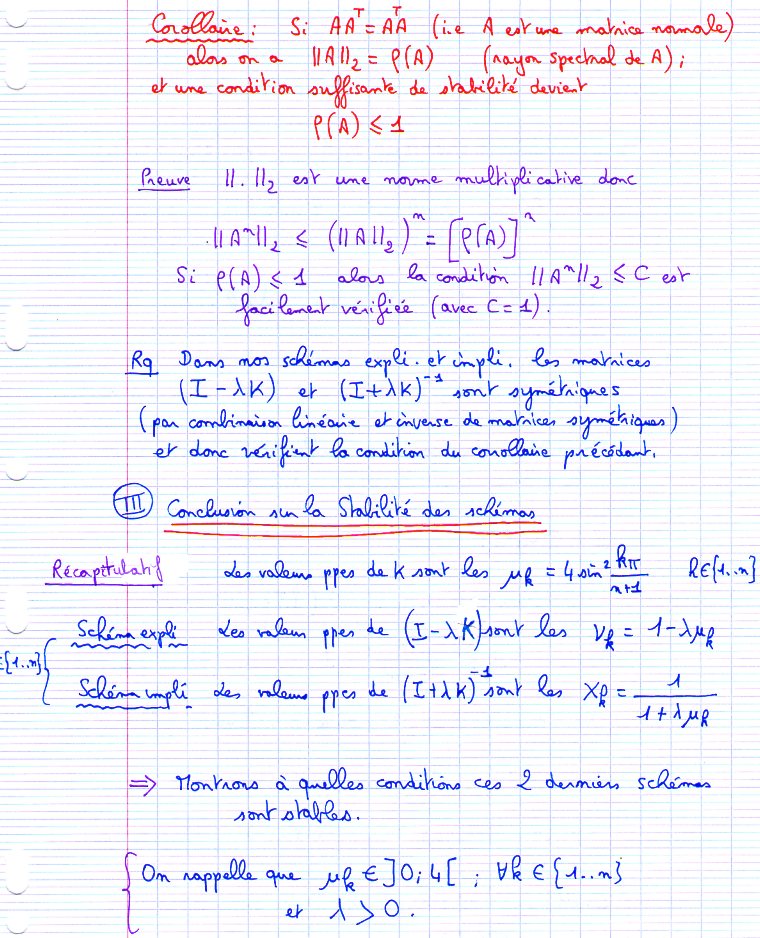 Corollaire : Si AAᵀ = AᵀA (i.e A est une matrice normale)
alors on a ||A||₂ = ρ(A) (rayon spectral de A) ;
et une condition suffisante de stabilité devient
ρ(A) ⩽ 1
Preuve ||.||₂ est une norme multiplicative donc
||Aⁿ||₂ ⩽ (||A||₂)ⁿ = [ρ(A)]ⁿ
Si ρ(A) ⩽ 1 alors la condition ||Aⁿ||₂ ⩽ C est
facilement vérifiée (avec C = 1).
Rq Dans nos schémas expli. et impli. les matrices
(I - λK) et (I + λK)⁻¹ sont symétriques
(par combinaison linéaire et inverse de matrices symétriques)
et donc vérifient la condition du corollaire précédant.
III Conclusion sur la Stabilité des schémas
Récapitulatif Les valeurs ppes de K sont les μₖ = 4 sin² kπ/n+1 k∈{1..n}
Schéma expli Les valeurs ppes de (I - λK) sont les νₖ = 1 - λμₖ
∈{1..n}
Schéma impli Les valeurs ppes de (I + λK)⁻¹ sont les χₖ = 1/1 + λμₖ
⇒ Montrons à quelles conditions ces 2 derniers schémas
sont stables.
On rappelle que μₖ ∈ ]0;4[ ; ∀k ∈ {1..n}
et λ > 0.